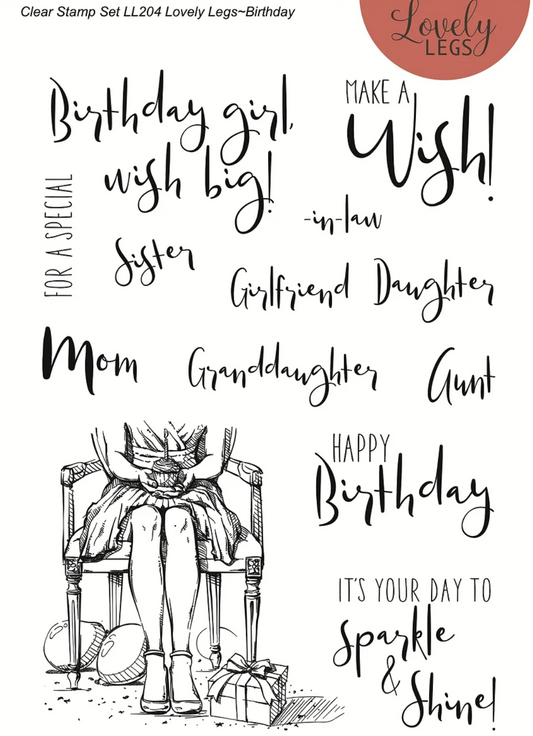 Clear Stamp Set LL204 Lovely Legs~Birthday
Lovely
LEGS
Birthday girl,
wish big!
MAKE A
Wish!
FOR A SPECIAL
-in-law
Sister
Girlfriend Daughter
Mom Granddaughter Aunt
HAPPY
Birthday
IT'S YOUR DAY TO
Sparkle
&
Shine!